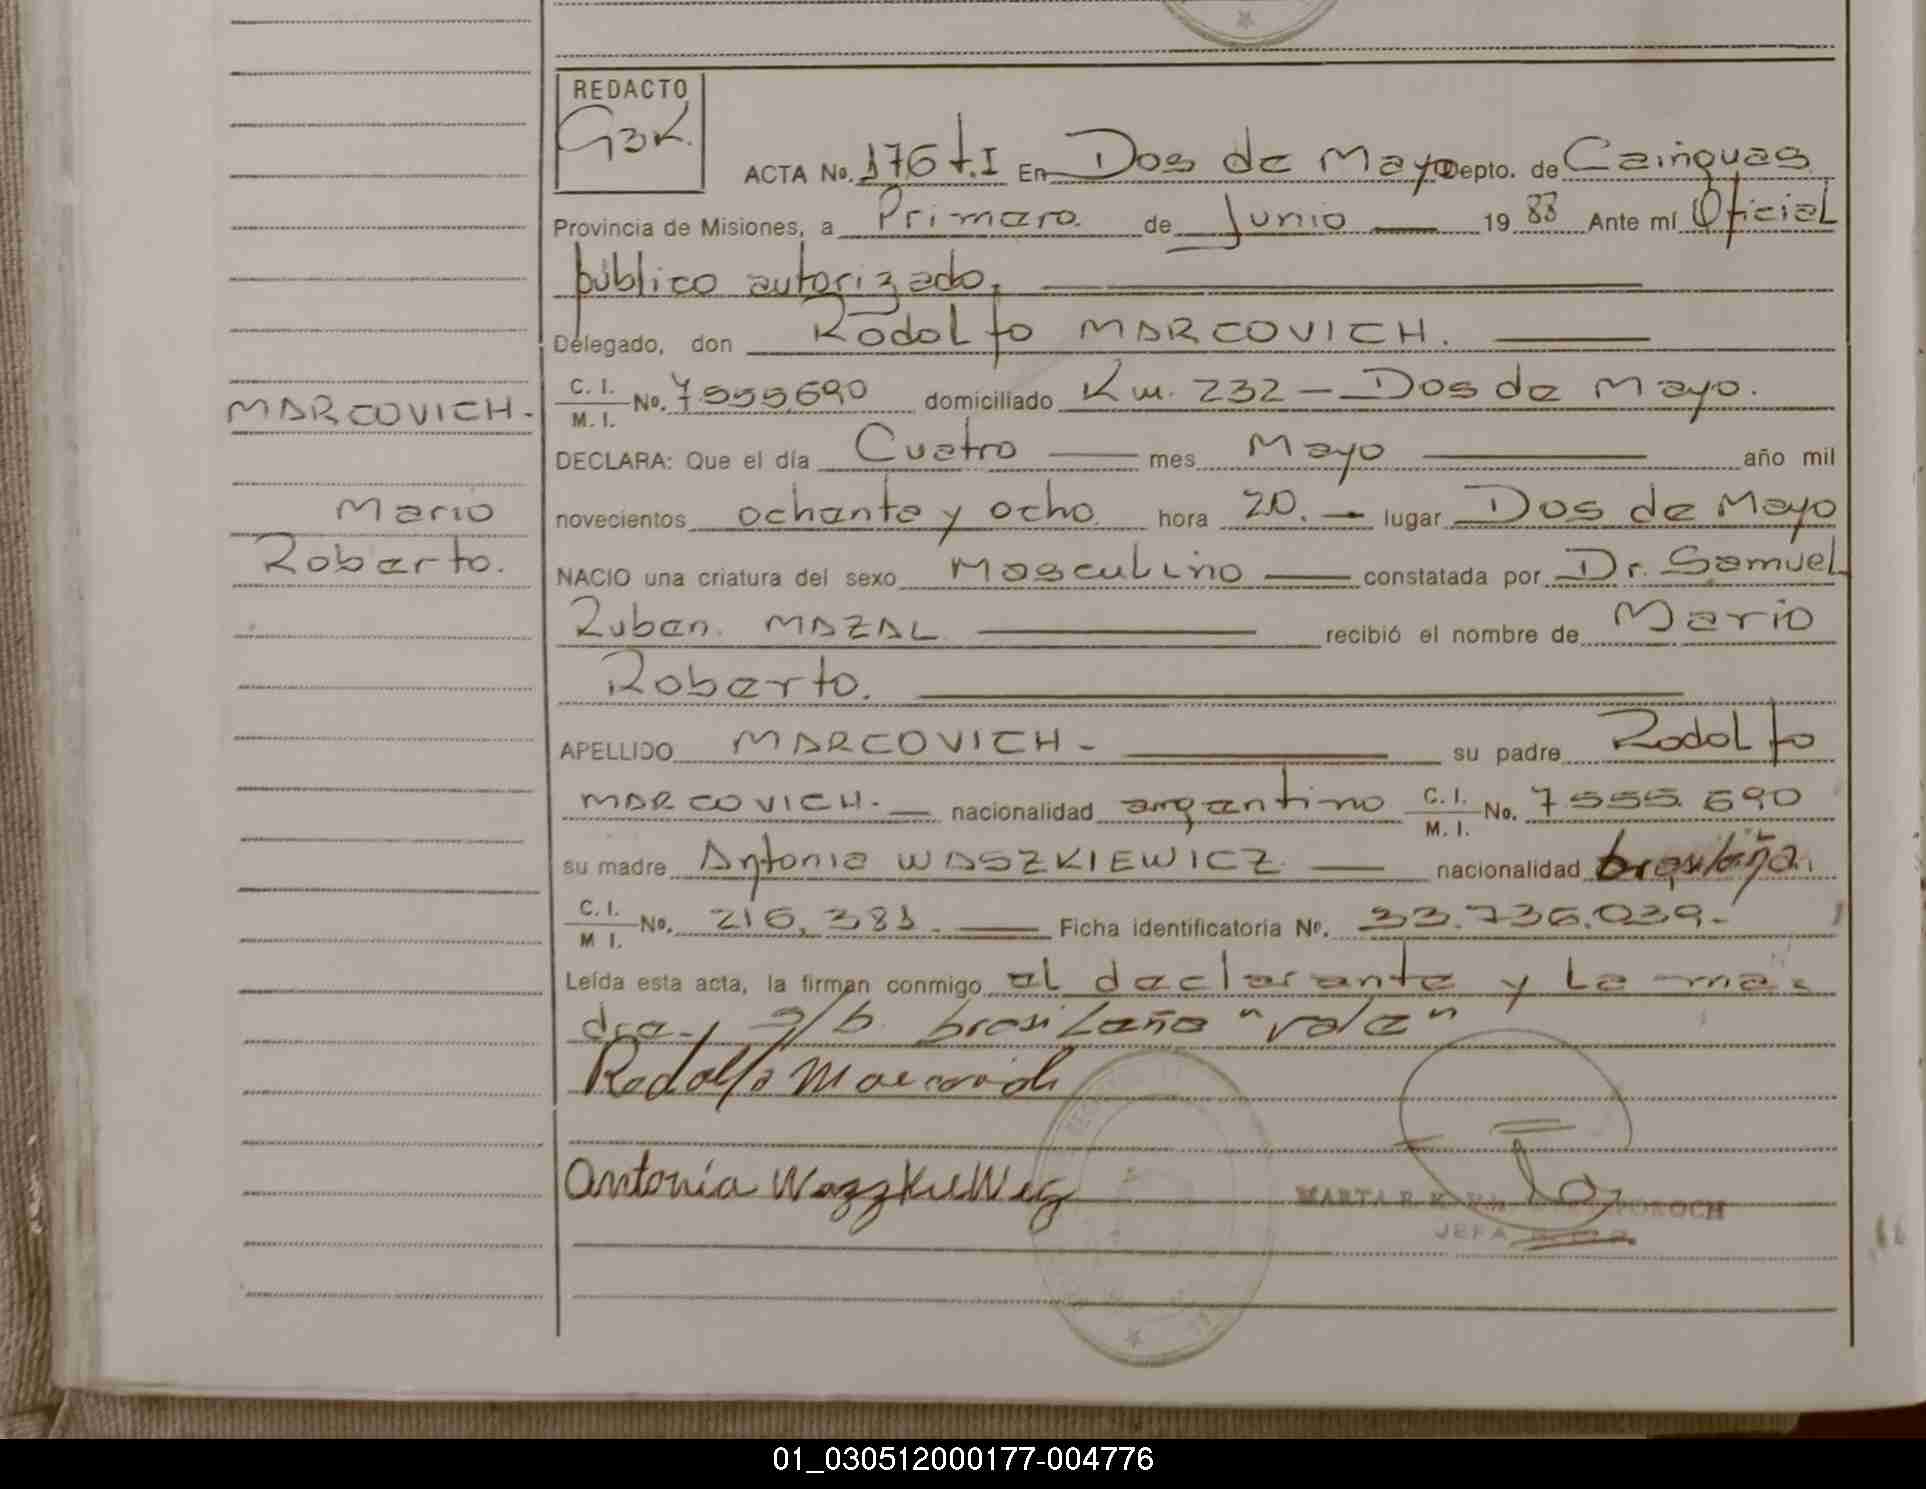 REDACTO
G3K.
ACTA No. 176 t.I En Dos de Mayo Depto. de Cainguas
Provincia de Misiones, a Primero. de Junio 19 88 Ante mí Oficial
público autorizado,
Delegado, don Rodolfo MARCOVICH.
C. I. / M. I. No. 7555690 domiciliado Km. 232 - Dos de Mayo.
MARCOVICH.
DECLARA: Que el día Cuatro mes Mayo año mil
novecientos ochenta y ocho hora 20. lugar Dos de Mayo
Mario
Roberto.
NACIO una criatura del sexo Masculino constatada por Dr. Samuel
Ruben. MAZAL recibió el nombre de Mario
Roberto.
APELLIDO MARCOVICH - su padre Rodolfo
MARCOVICH. nacionalidad argentino C. I. / M. I. No. 7555.690
su madre Antonia WASZKIEWICZ nacionalidad brasileña.
C. I. / M I. No. 216.381. Ficha identificatoria No. 33.736.039.-
Leída esta acta, la firman conmigo el declarante y la ma-
dre., s/b. brasileña "vale"
Rodolfo Marcovich
Antonia WazzkieWig
MARTA
JEFA
01_030512000177-004776